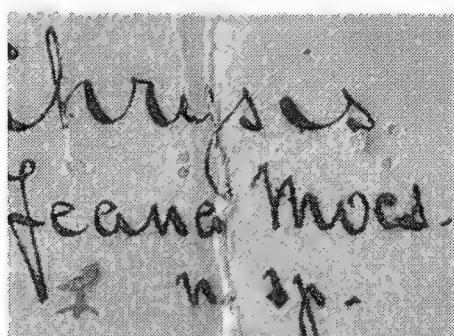 Chrysis
Feana Mocs.
n. sp.